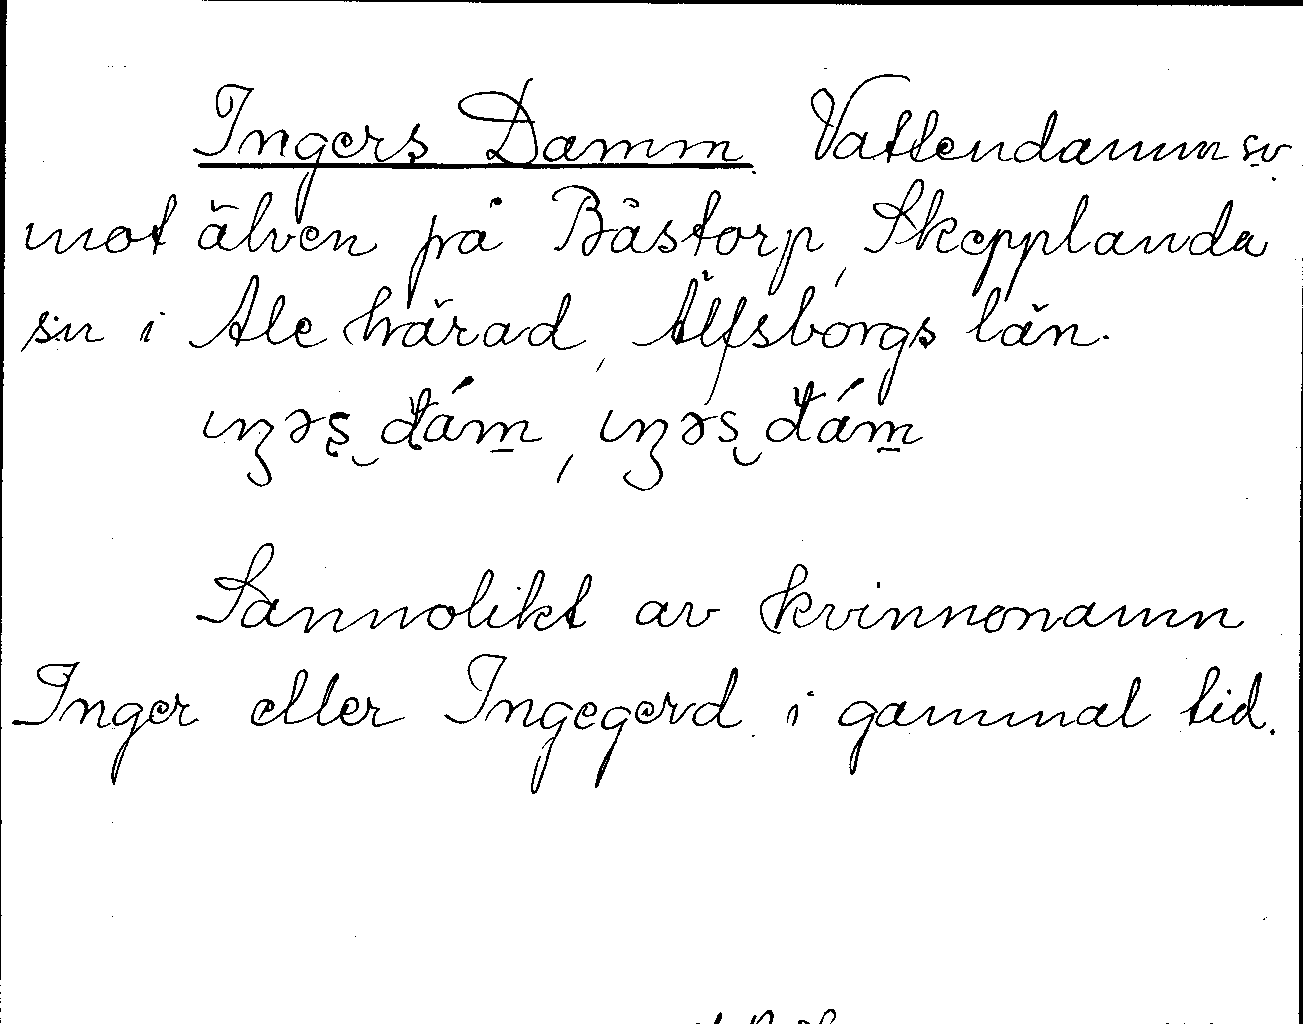 Ingers Damm Vattendamm sv.
mot älven på Båstorp, Skepplanda
sn i Ale härad, Älfsborgs län.
Sannolikt av kvinnonamn
Inger eller Ingegerd i gammal tid.